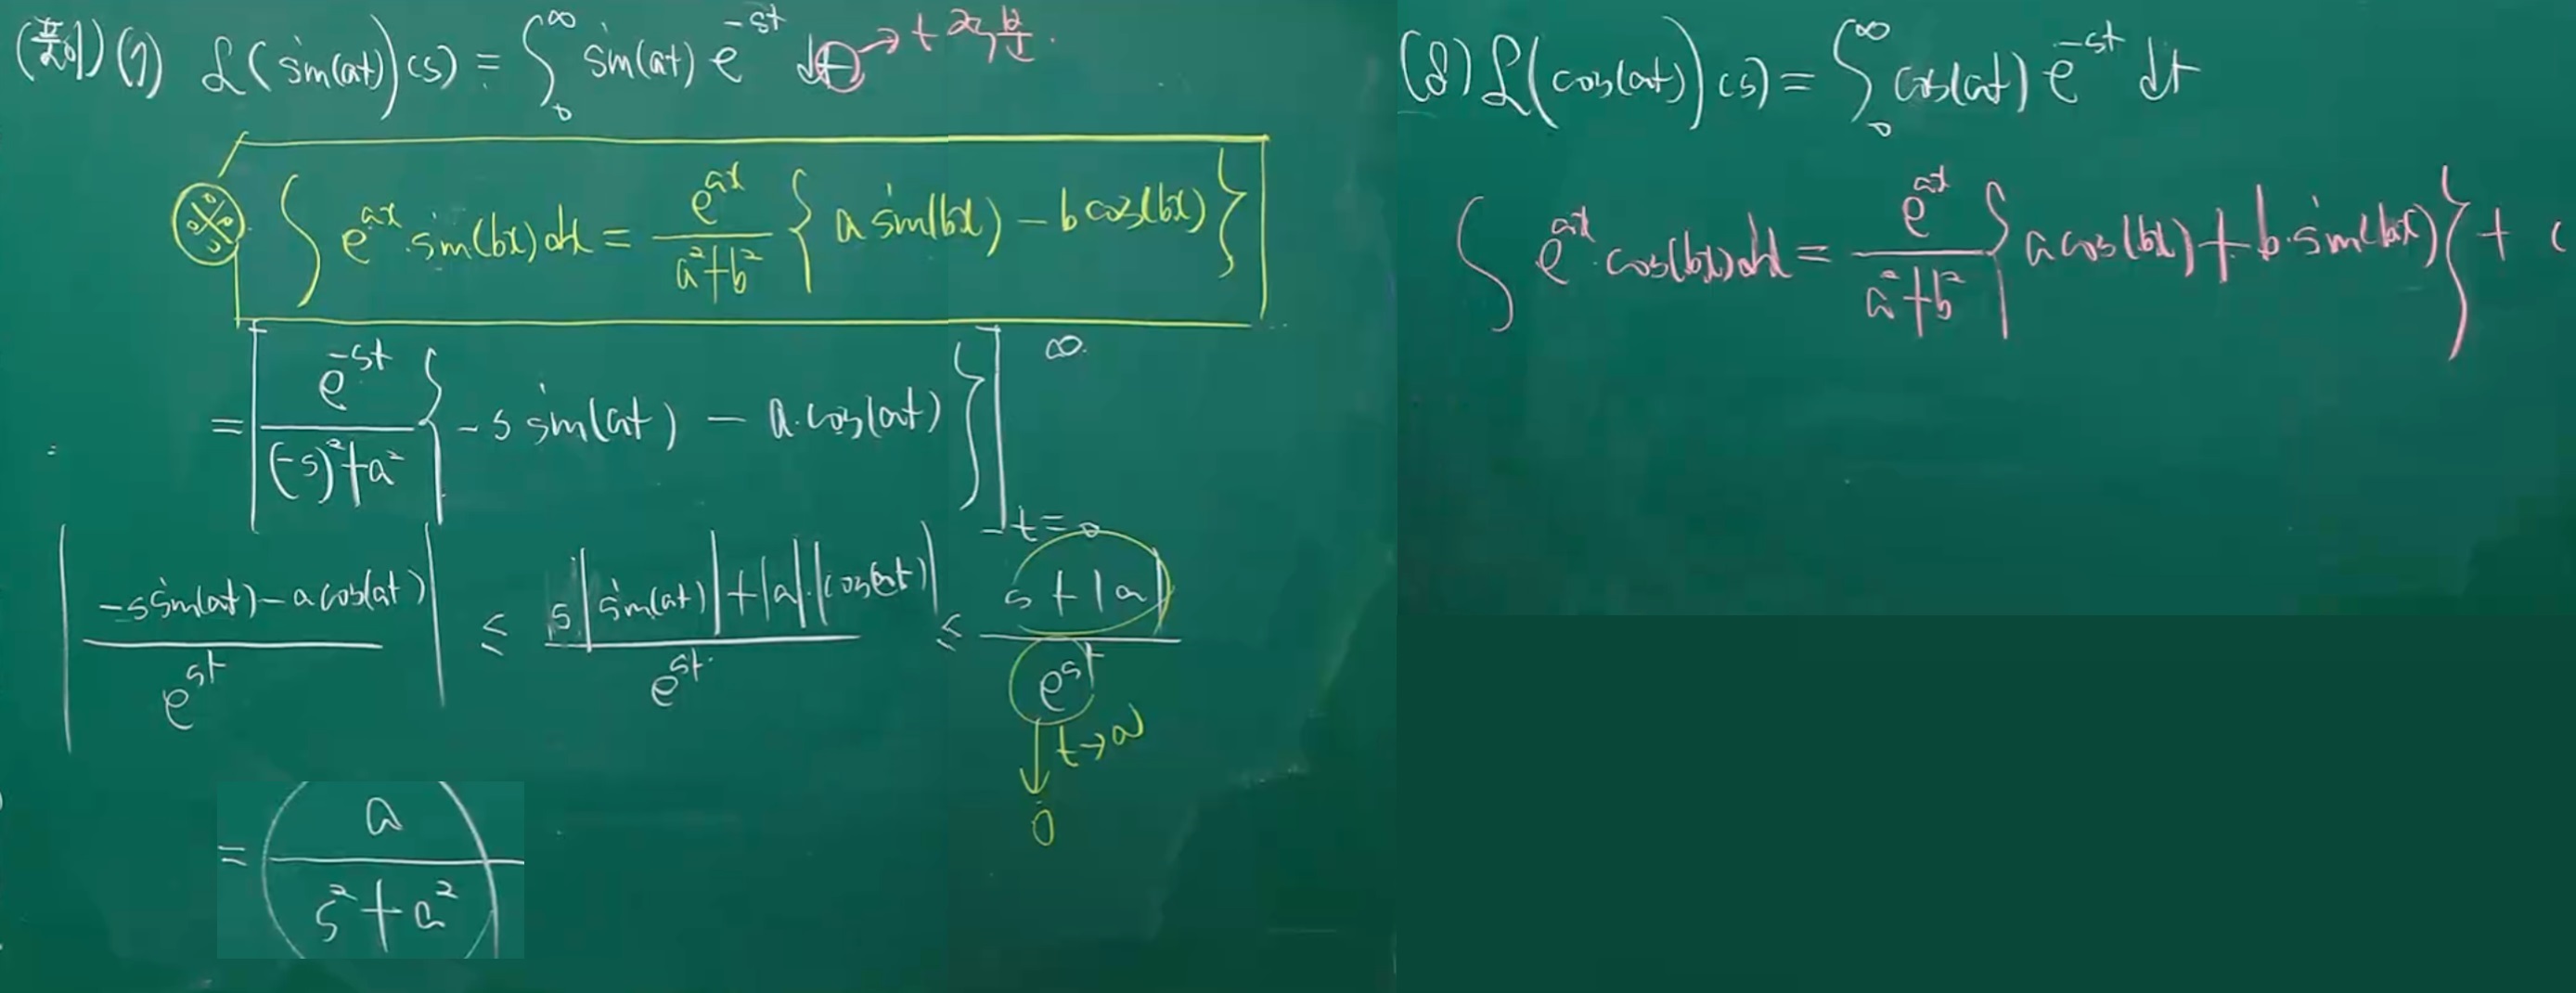 (풀이) (7) ℒ(sin(at))(s) = ∫₀^∞ sin(at) e^{-st} dt → t
∫ e^{ax}·sin(bx)dx = e^{ax}/(a²+b²) { a sin(bx) - b cos(bx) }
= [ e^{-st}/((-s)²+a²) { -s sin(at) - a·cos(at) } ]_{t=0}^{∞}
| (-s sin(at) - a cos(at))/e^{st} | ≤ (s|sin(at)| + |a|·|cos(at)|)/e^{st} ≤ (s+|a|)/e^{st}
↓ t→∞
0
= a/(s²+a²)
(8) ℒ(cos(at))(s) = ∫₀^∞ cos(at) e^{-st} dt
∫ e^{ax}·cos(bx)dx = e^{ax}/(a²+b²) { a cos(bx) + b·sin(bx) } + C